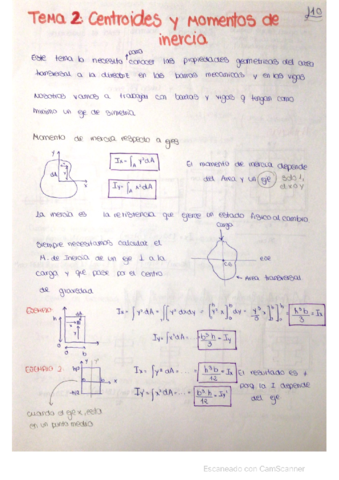 TEMA 2: Centroides y Momentos de
inercia
Este tema lo necesito para conocer las propiedades geometricas del area
transversal a la directriz en las barras mecanicas y en las vigas
Nosotros vamos a trabajar con barras y vigas q tengan como
minimo un eje de simetria
Momento de inercia respecto a ejes
Ix = ∫A y² dA
Iy = ∫A x² dA
El momento de inercia depende
del Area y un eje
La inercia es la resistencia que ejerce un estado fisico al cambio.
Carga
Siempre necesitamos calcular el
M. de Inercia de un eje ⊥ a la
carga y que pase por el centro
de gravedad
CG
eje
Area transversal
EJEMPLO
Iy = ∫x²dA = b³h/3 = Iy
EJEMPLO 2
Ix = ∫y²dA = ... = h³b/12 = Ix
Iy = ∫x²dA = ... = b³h/12 = Iy
El resultado es ≠
para la I depende
del eje
cuando el eje x, esta
en un punto medio
Escaneado con CamScanner